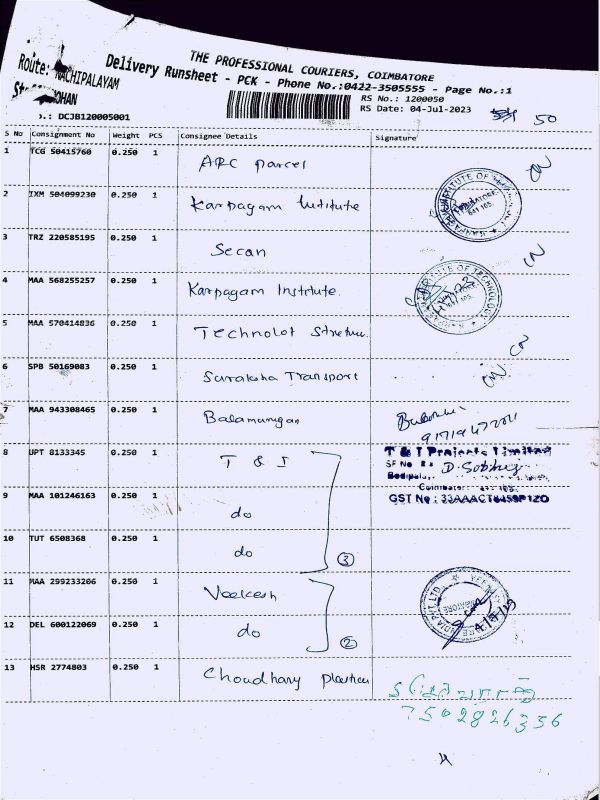 THE PROFESSIONAL COURIERS, COIMBATORE
Route: NACHIPALAYAM
Delivery Runsheet - PCK - Phone No.:0422-3505555 - Page No.:1
RS No.: 1200050
RS Date: 04-Jul-2023
50
.: DCJB120005001
S No Consignment No Weight PCS Consignee Details Signature
1 TCG 50415760 0.250 1 ARC parcel
2 IXM 504099230 0.250 1 Karpagam Institute
3 TRZ 220585195 0.250 1 Secan
4 MAA 568255257 0.250 1 Karpagam Institute.
5 MAA 570414836 0.250 1 Technolot Structure
6 SPB 50169083 0.250 1 Suraksha Transport
7 MAA 943308465 0.250 1 Balamurugan
8 UPT 8133345 0.250 1 T & I
T & I Projects Limited
SF No
D. Sobhiy
Coimbatore
9 MAA 101246163 0.250 1 do
GST No : 33AAACT6459P1ZO
10 TUT 6508368 0.250 1 do
3
11 MAA 299233206 0.250 1 Veekesh
12 DEL 600122069 0.250 1 do
2
13 HSR 2774803 0.250 1 Choudhary plastices
7502826356
4